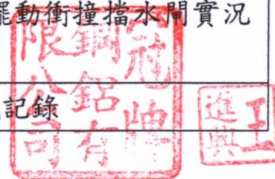 擺動衝撞擋水閘實況
記錄
冠牌
鋼鋁有
限公司
進興
工